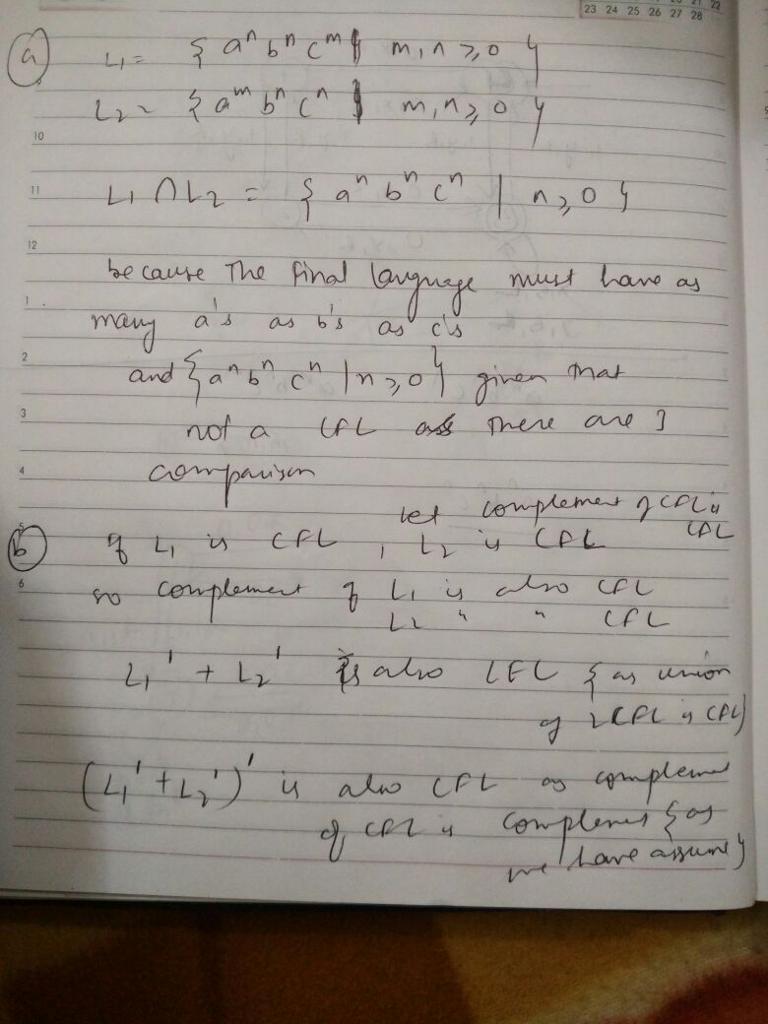 23 24 25 26 27 28
a L1 = { aⁿ bⁿ cᵐ | m, n ≥ 0 }
L2 = { aᵐ bⁿ cⁿ | m, n ≥ 0 }
10
11 L1 ∩ L2 = { aⁿ bⁿ cⁿ | n ≥ 0 }
12
because The final language must have as
1 many a's as b's as c's
2 and { aⁿ bⁿ cⁿ | n ≥ 0 } given that
3 not a CFL as there are 3
4 comparison
let complement of CFL is CFL
5 b if L1 is CFL, L2 is CFL
6 so complement of L1 is also CFL
L2 " " CFL
L1' + L2' is also CFL { as union
of 2 CFL is CFL }
(L1' + L2')' is also CFL as complemen
of CFL is complemen { as
we have assume }